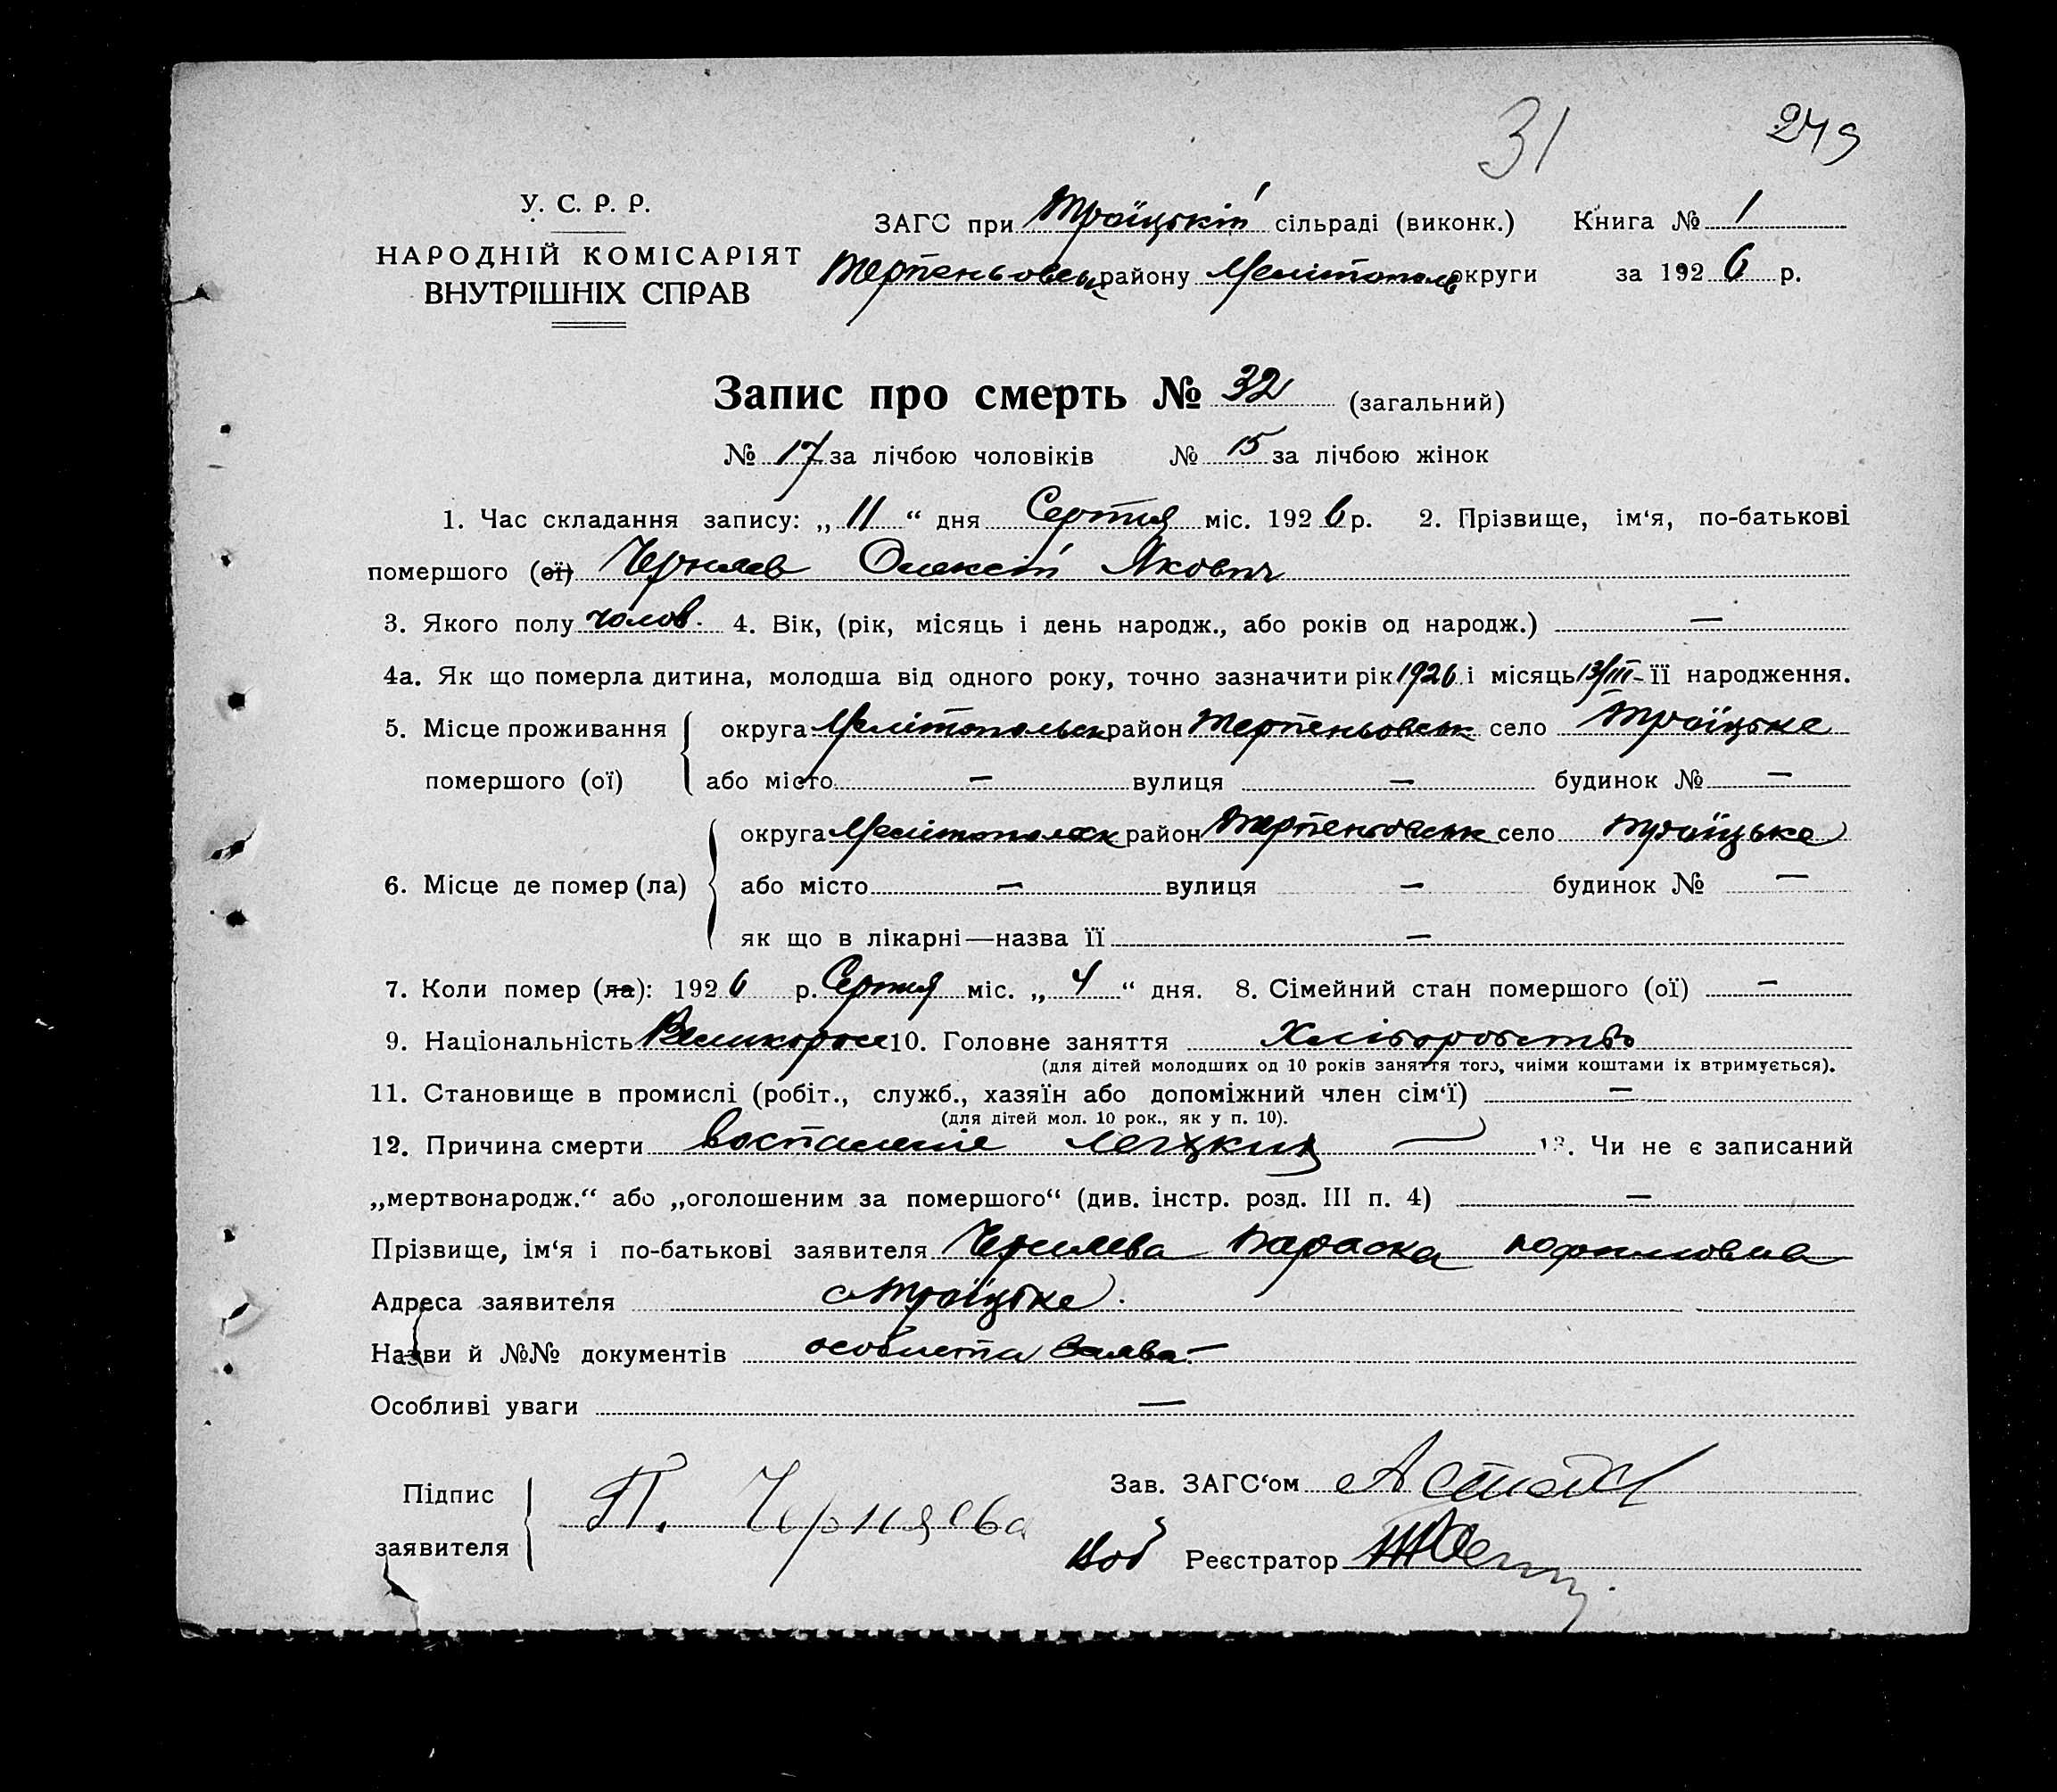 31 249
У. С. Р. Р.
НАРОДНІЙ КОМІСАРІЯТ
ВНУТРІШНІХ СПРАВ
ЗАГС при Троїцькій сільраді (виконк.) Книга № 1
Терпеньовськ району Мелітополь округи за 1926 р.
Запис про смерть № 32 (загальний)
№ 17 за лічбою чоловіків № 15 за лічбою жінок
1. Час складання запису: „11“ дня Серпня міс. 1926 р. 2. Прізвище, ім‘я, по-батькові
помершого (ої) Черняєв Олексій Якович
3. Якого полу чолов. 4. Вік, (рік, місяць і день народж., або років од народж.) —
4а. Як що померла дитина, молодша від одного року, точно зазначити рік 1926 і місяць 13/III - її народження.
5. Місце проживання помершого (ої) округа Мелітопольськ район Терпеньовськ село Троїцьке
або місто — вулиця — будинок № —
6. Місце де помер (ла) округа Мелітопольск район Терпеньовськ село Троїцьке
або місто — вулиця — будинок № —
як що в лікарні—назва її —
7. Коли помер (ла): 1926 р. Серпня міс. „4“ дня. 8. Сімейний стан помершого (ої) —
9. Національність Великорос 10. Головне заняття Хліборобство
(для дітей молодших од 10 років заняття того, чиїми коштами їх втримується).
11. Становище в промислі (робіт., служб., хазяїн або допоміжний член сім‘ї) —
(для дітей мол. 10 рок., як у п. 10).
12. Причина смерти воспаление легких 13. Чи не є записаний
„мертвонародж.“ або „оголошеним за помершого“ (див. інстр. розд. III п. 4) —
Прізвище, ім‘я і по-батькові заявителя Черняєва Параска
Адреса заявителя с Троїцьке.
Назви й №№ документів особиста заява. —
Особливі уваги —
Підпис заявителя П. Черняева
Зав. ЗАГС‘ом
Реєстратор